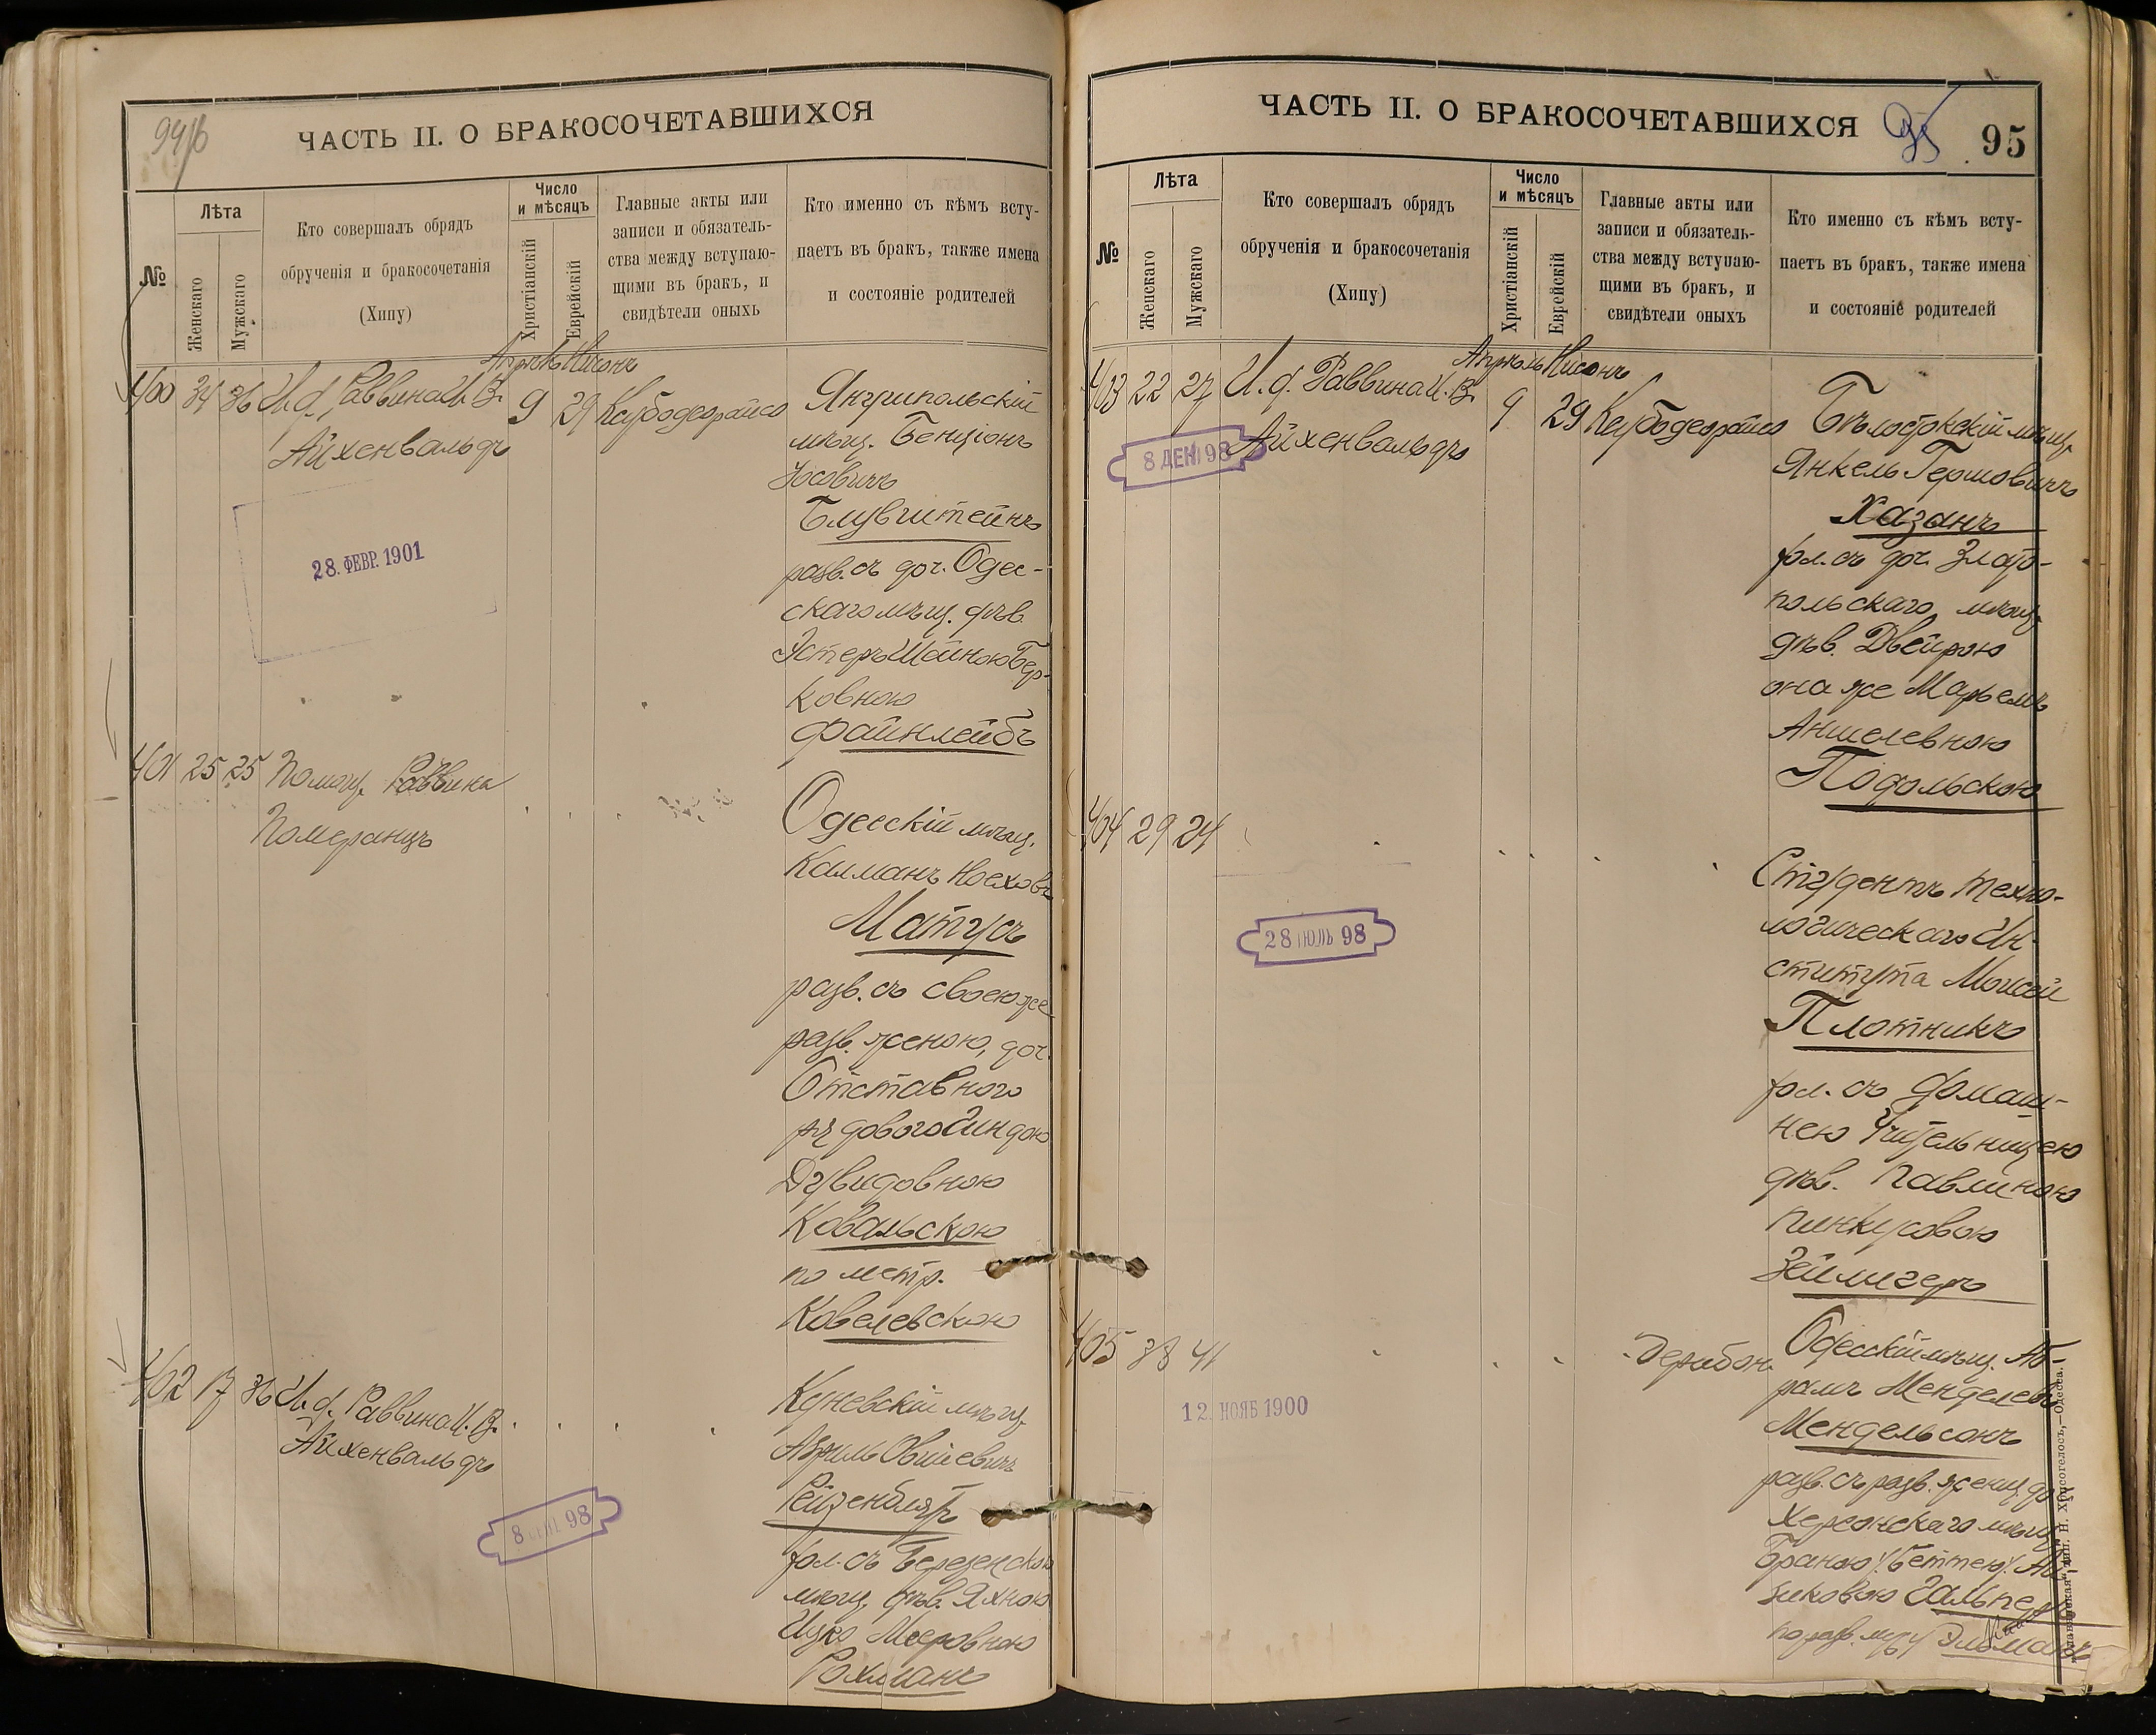 94/б
ЧАСТЬ II. О БРАКОСОЧЕТАВШИХСЯ
№
Лѣта
Женскаго
Мужскаго
Кто совершалъ обрядъ
обрученія и бракосочетанія
(Хипу)
Число
и мѣсяцъ
Христіанскій
Еврейскій
Главные акты или
записи и обязатель-
ства между вступаю-
щими въ бракъ, и
свидѣтели оныхъ
Кто именно съ кѣмъ всту-
паетъ въ бракъ, также имена
и состояніе родителей
Апрѣль Нисонъ
400 34 36 И. д. Раввина И. В. 9 29
Айхенвальдъ
28. ФЕВР. 1901
мѣщ. Бенціонъ
Іосовичъ
Блувштейнъ
разв. съ доч. Одес-
скаго мѣщ. дѣв.
Эстеръ Шейною Бер-
ковною
Файнлейбъ
401 25 25 Помощ. Раввина
Померанцъ
Одесскій мѣщ.
Калманъ Ноехов
Матусъ
разв. съ своею же
разв. женою, доч.
Отставного
рядового Гиндою
Дувидовною
Ковальскою
по метр.
Ковелевскою
402 17 36 И. д. Раввина И. В.
Айхенвальдъ
8 98
Куневскій мѣщ.
Азриль Овшіевичъ
Рейзенблятъ
хол. съ Березенскою
мѣщ. дѣв. Яхною
Меровною
Рохманъ
ЧАСТЬ II. О БРАКОСОЧЕТАВШИХСЯ
95
95
№
Лѣта
Женскаго
Мужскаго
Кто совершалъ обрядъ
обрученія и бракосочетанія
(Хипу)
Число
и мѣсяцъ
Христіанскій
Еврейскій
Главные акты или
записи и обязатель-
ства между вступаю-
щими въ бракъ, и
свидѣтели оныхъ
Кто именно съ кѣмъ всту-
паетъ въ бракъ, также имена
и состояніе родителей
Апрѣль Нисонъ
403 22 27 И. д. Раввина И. В. 9 29
Айхенвальдъ
8 ДЕК 98
мѣщ.
Янкель Гершовичъ
Хазанъ
хол. съ доч. Злато-
польскаго мѣщ.
дѣв. Двейрою
она же Марьемъ
Аншелевною
Подольскою
404 29 24
28 ІЮЛЬ 98
Студентъ Техно-
логическаго Ин-
ститута Моисей
Плотникъ
хол. съ домаш-
нею Учительницею
дѣв. Павлиною
Пинкусовою
Зейлигеръ
405 38 41
12. НОЯБ 1900
Одесскій мѣщ. Аб-
рамъ Менделевъ
Мендельсонъ
разв. съ разв. женщ. до
Херсонскаго мѣщ.
Браною /Беттею/
Гальпе
по разв. мужу
„Славянская“ тип. Н. Хрисогелосъ,—Одесса.